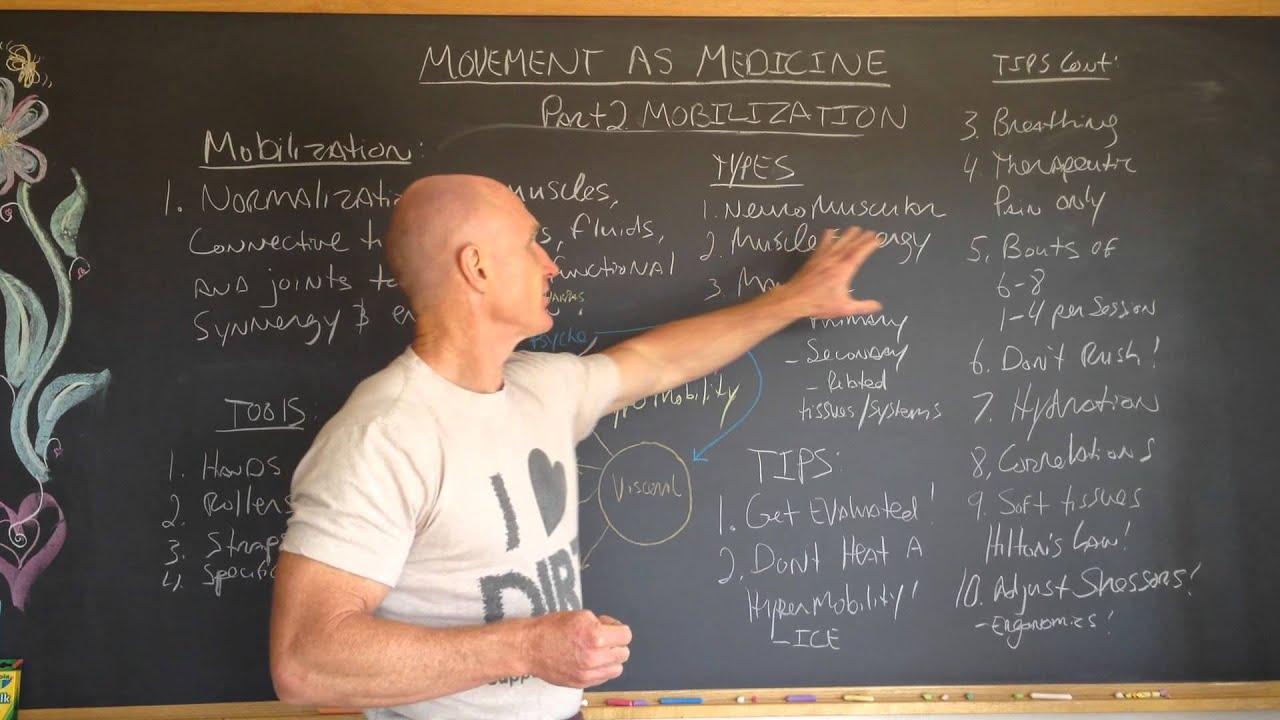 MOVEMENT AS MEDICINE
Part 2 MOBILIZATION
Mobilization:
1. NORMALIZATI
Muscles,
Connective t
s, fluids,
AND joints to
functional
Synnergy &
Psycho
Mobility
Visceral
TOOLS:
1. HANDS
2. Rollers
3. Straps
4. Specific
TYPES
1. NeuroMuscular
2. Muscle Energy
3. Ma
Primary
- Secondary
- Related
tissues/systems
TIPS:
1. Get Evaluated!
2. Don't Heat A
HyperMobility!
- ICE
TIPS Cont:
3. Breathing
4. Therapeutic
Pain only
5. Bouts of
6-8
1-4 per Session
6. Don't Rush!
7. Hydration
8. Correlations
9. Soft tissues
Hilton's Law!
10. Adjust Stressors!
- Ergonomics!
I
DIR
supp